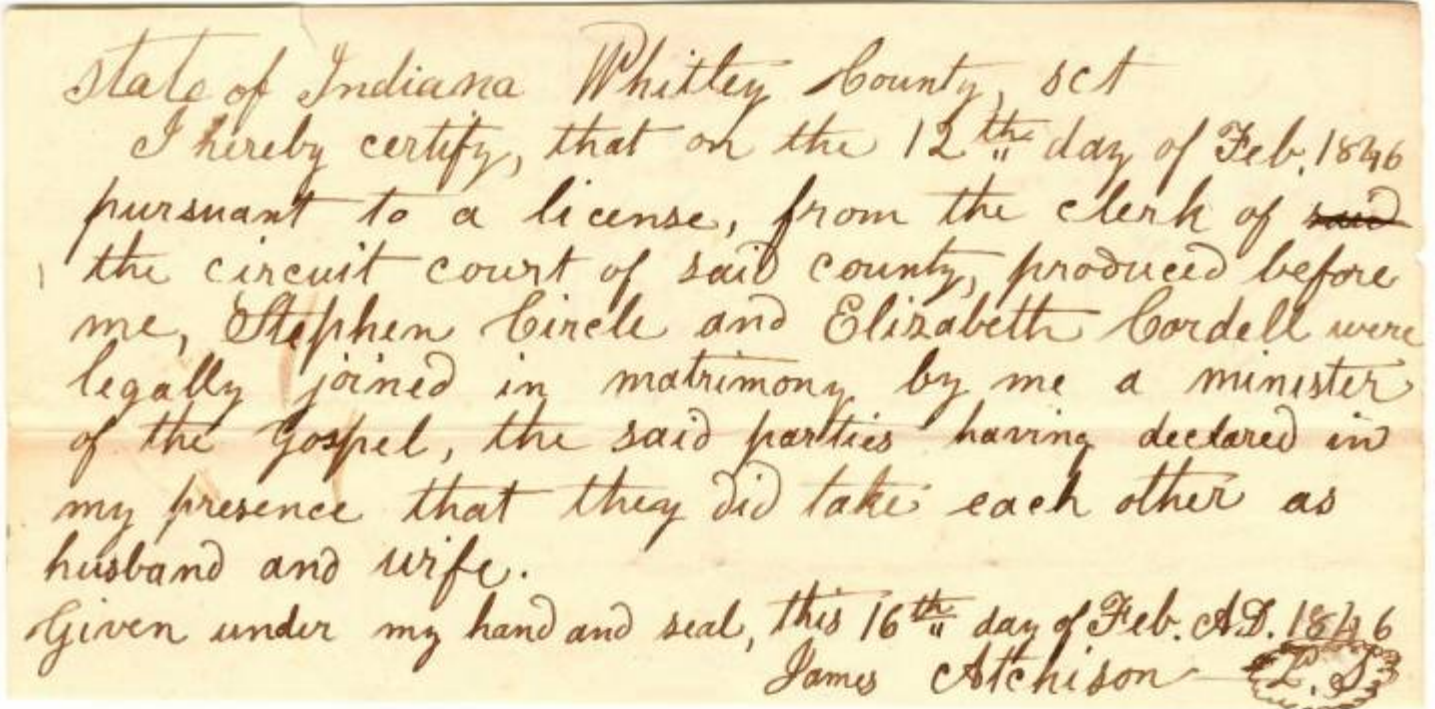 State of Indiana Whitley County, sct
I hereby certify, that on the 12th day of Feb. 1846
pursuant to a license, from the clerk of said
the circuit court of said county, produced before
me, Stephen Circle and Elizabeth Cordell were
legally joined in matrimony by me a minister
of the Gospel, the said parties having declared in
my presence that they did take each other as
husband and wife.
Given under my hand and seal, this 16th day of Feb. A.D. 1846
James Atchison L.S.